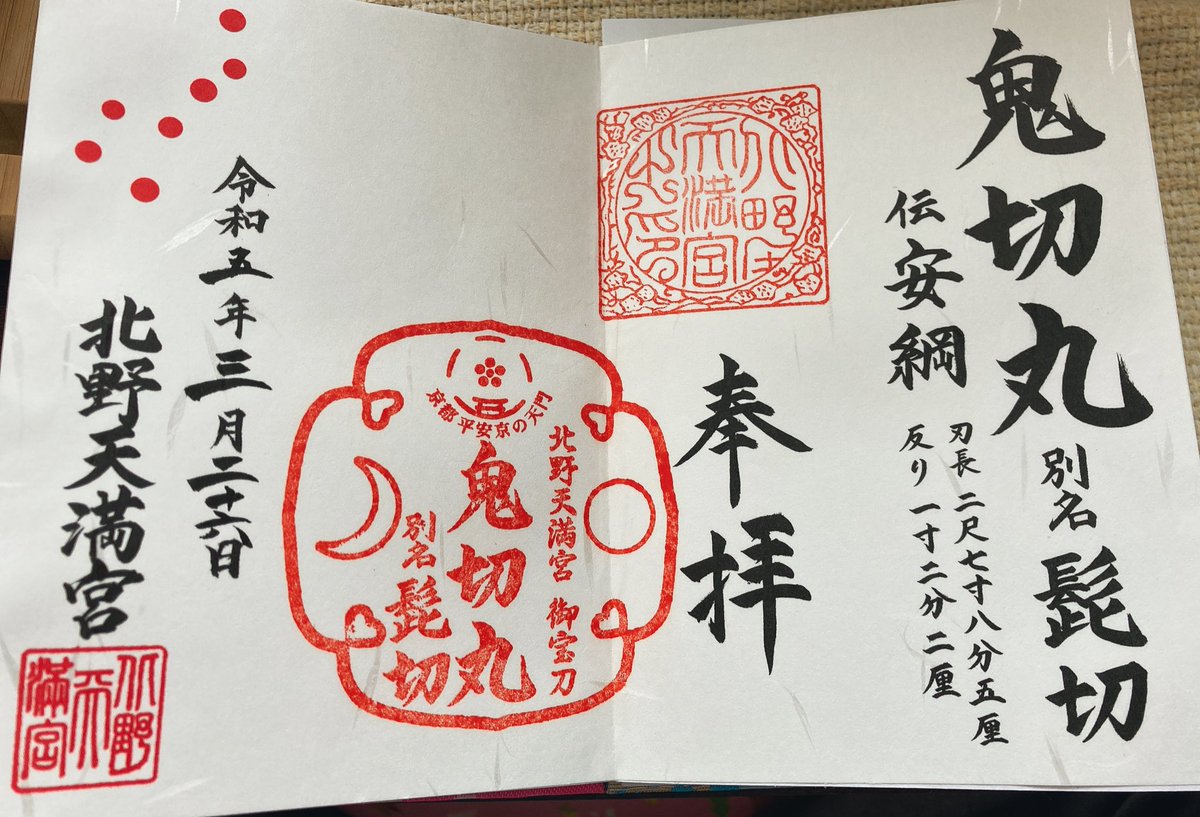 鬼切丸 別名 髭切
伝 安綱
刃長 二尺七寸八分五厘
反り 一寸二分二厘
奉拝
北野
天満宮
北野天満宮 御宝刀
京都 平安京の天門
鬼切丸
別名 髭切
令和五年三月二十六日
北野天満宮
北野
天
満宮